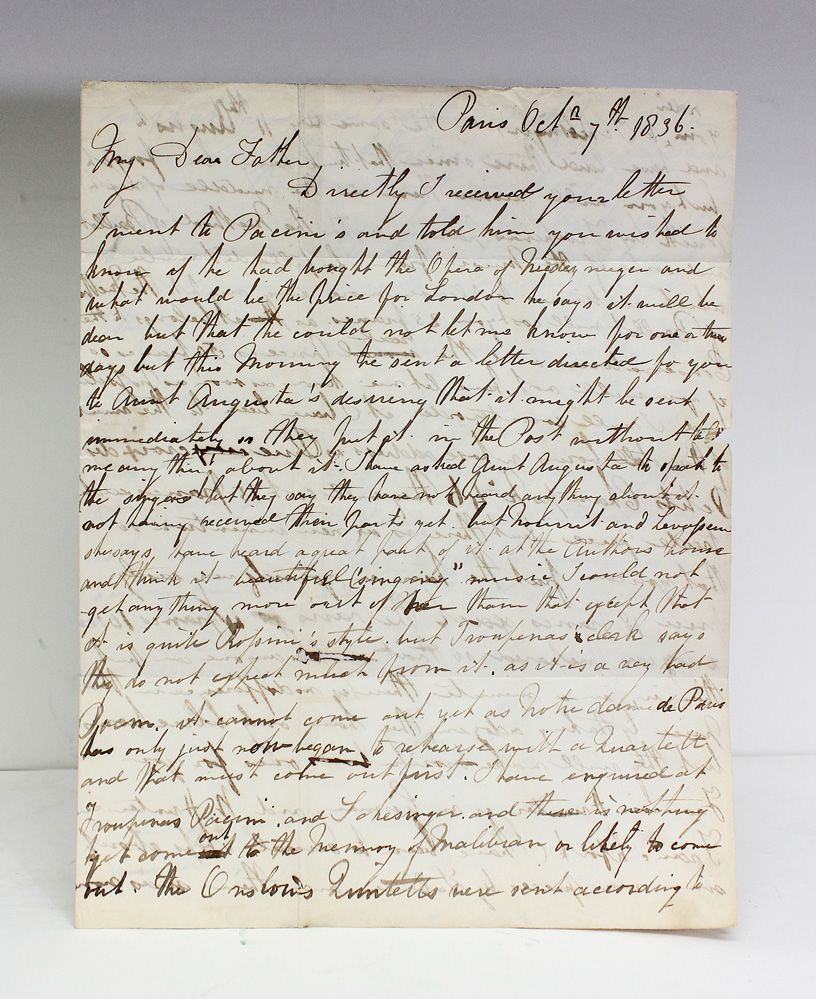 Paris Octr 7th 1836.
My Dear Father
Directly I received your letter
I went to Pacini's and told him you wished to
know if he had bought the Opera of and
what would be the price for London he says it will be
dear but that he could not let me know for one or two
days but this Morning he sent a letter directed for you
to Aunt Augusta's desiring that it might be sent
immediately so they put it in the Post without
me any thing about it. I have asked Aunt Augusta to speak to
the singers but they say they have not heard anything about it
not having received their parts yet. but Nourrit and Levasseur
she says, have heard a great part of it at the Authors house
and think it beautiful "singing" music I could not
get anything more out of her than that except that
it is quite Rossini's style. but Troupenas' clerk says
they do not expect much from it. as it is a very bad
Poem, it cannot come out yet as Notre dame de Paris
has only just now began to rehearse with a Quartett
and that must come out first. I have enquired at
Troupenas Pacini and and there is nothing
yet come out to the Memory of Malibran or likely to come
out. The Onslow's Quintetts were sent according to